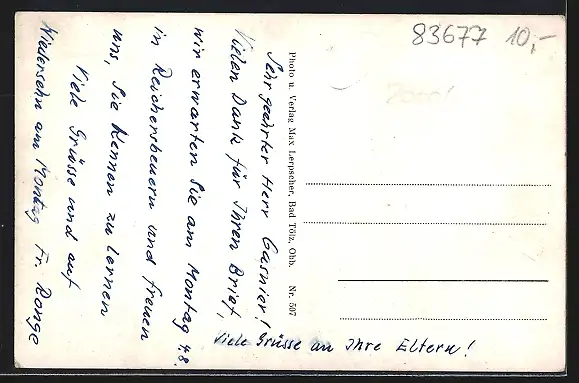 Sehr geehrter Herr Gasnier!
Vielen Dank für Ihren Brief,
wir erwarten Sie am Montag 4.8.
in Reichersbeuern und freuen
uns, Sie kennen zu lernen
Viele Grüsse und auf
Wiedersehn am Montag Fr. Ronge
Viele Grüsse an Ihre Eltern!
Photo u. Verlag Max Lerpscher, Bad Tölz, Obb. Nr. 507
83677 10,-